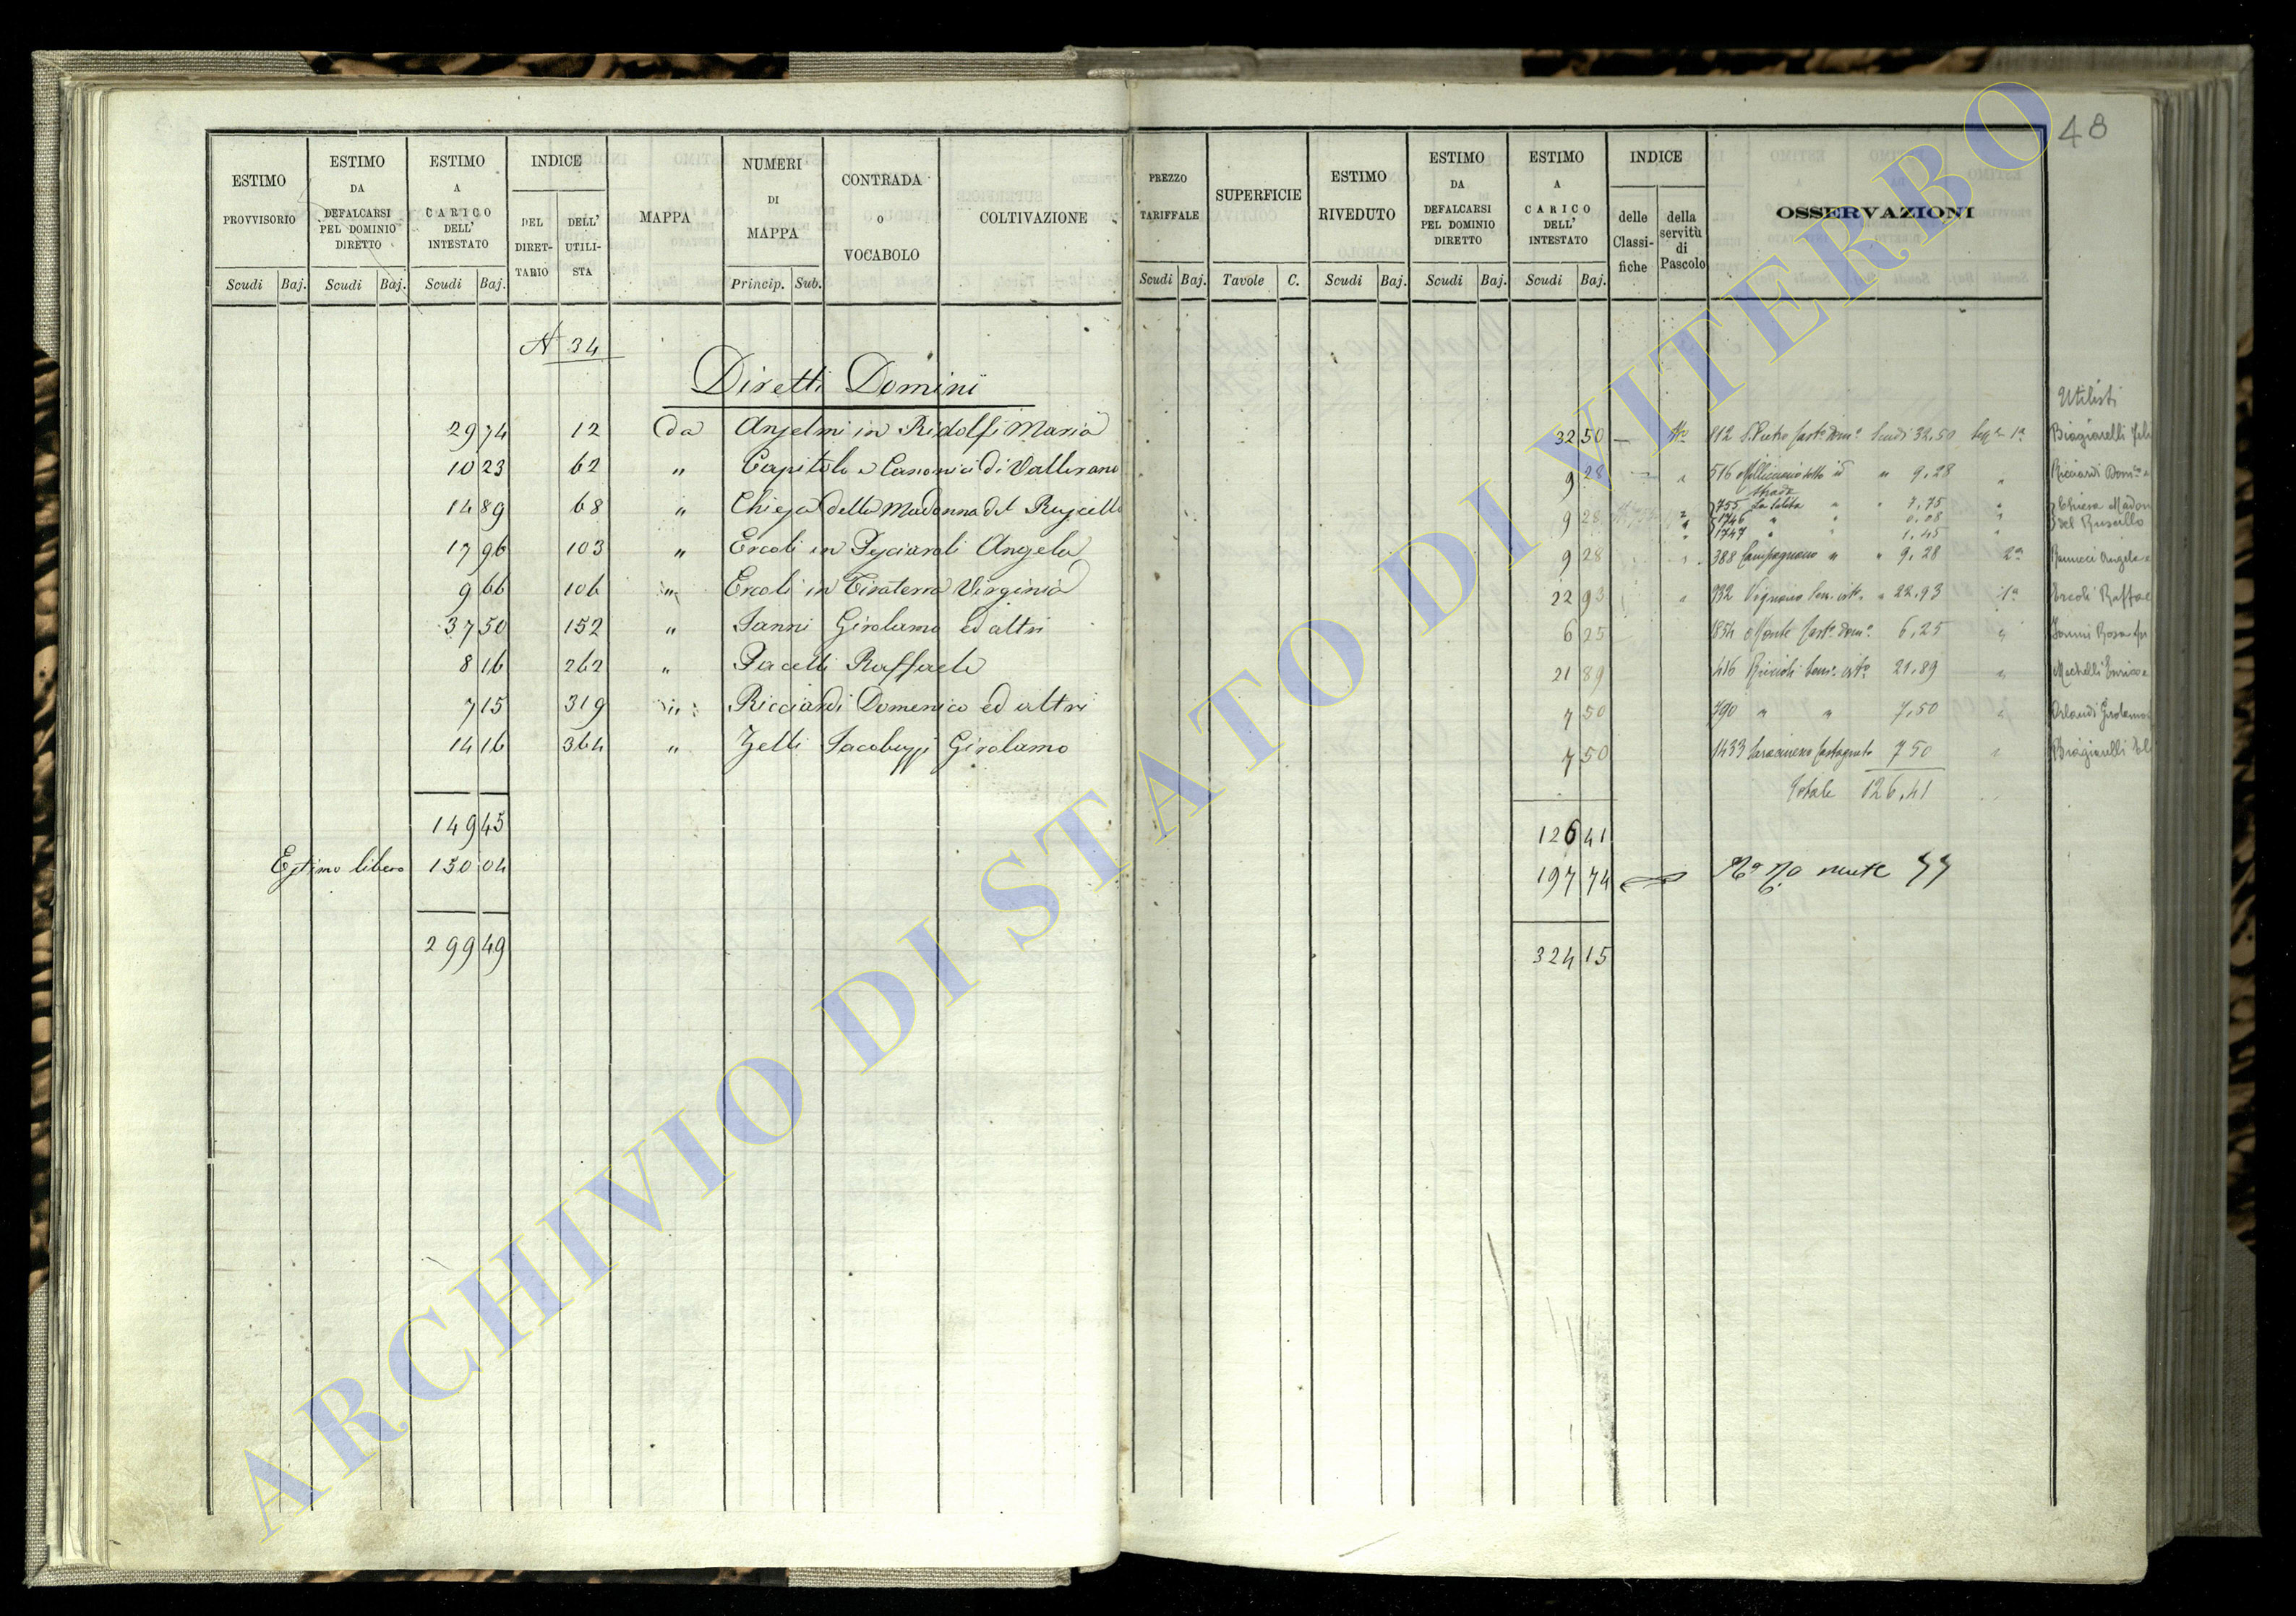 48
ESTIMO PROVVISORIO
ESTIMO DA DEFALCARSI PEL DOMINIO DIRETTO
ESTIMO A CARICO DELL' INTESTATO
INDICE
DEL DIRETTARIO
DELL' UTILISTA
MAPPA
NUMERI DI MAPPA
CONTRADA O VOCABOLO
COLTIVAZIONE
Scudi Baj. Scudi Baj. Scudi Baj. Princip. Sub.
PREZZO TARIFFALE
SUPERFICIE
ESTIMO RIVEDUTO
ESTIMO DA DEFALCARSI PEL DOMINIO DIRETTO
ESTIMO A CARICO DELL' INTESTATO
INDICE
delle Classifiche
della servitù di Pascolo
OSSERVAZIONI
Scudi Baj. Tavole C. Scudi Baj. Scudi Baj. Scudi Baj.
A 34
Diretti Domini
29 74 12 da Anselmi in Ridolfi Maria
10 23 62 " Capitolo e Canonici di Vallerano
14 89 68 " Chiesa della Madonna del Ruscello
17 96 103 " Ercoli in Angela
9 66 106 " Ercoli in Tiraterra Virginia
37 50 152 " Janni Girolamo ed altri
8 16 262 " Pacelli Raffaele
7 15 319 " Ricciardi Domenico ed altri
14 16 364 " Zelli Jacobuzzi Girolamo
149 45
Estimo libero 150 04
299 49
Utilisti
32 50 912 S. Pietro Cast. dom. Scudi 32.50 1a Biagiarelli
9 28 516 sotto id " 9,28 " Ricciardi Dom.co
strada
9 28 755 La Salita " " 7,75 " Chiesa Madon
1746 " " 0,08 " del Ruscello
1747 " " 1,45
9 28 388 Campagnano " " 9,28 2a Angela
22 93 932 Vignano " 22,93 1a Ercoli Raffae
6 25 1854 Monte Cast. dom. 6,25 " Janni Rosa
21 89 416 21,89 " Machelli Enrico
7 50 790 " " 7,50 " Orlandi Girolamo
7 50 1433 Saracineno Castagneto 7 50 " Biagiarelli
Totale 126,41
126 41
197 74
324 15
ARCHIVIO DI STATO DI VITERBO